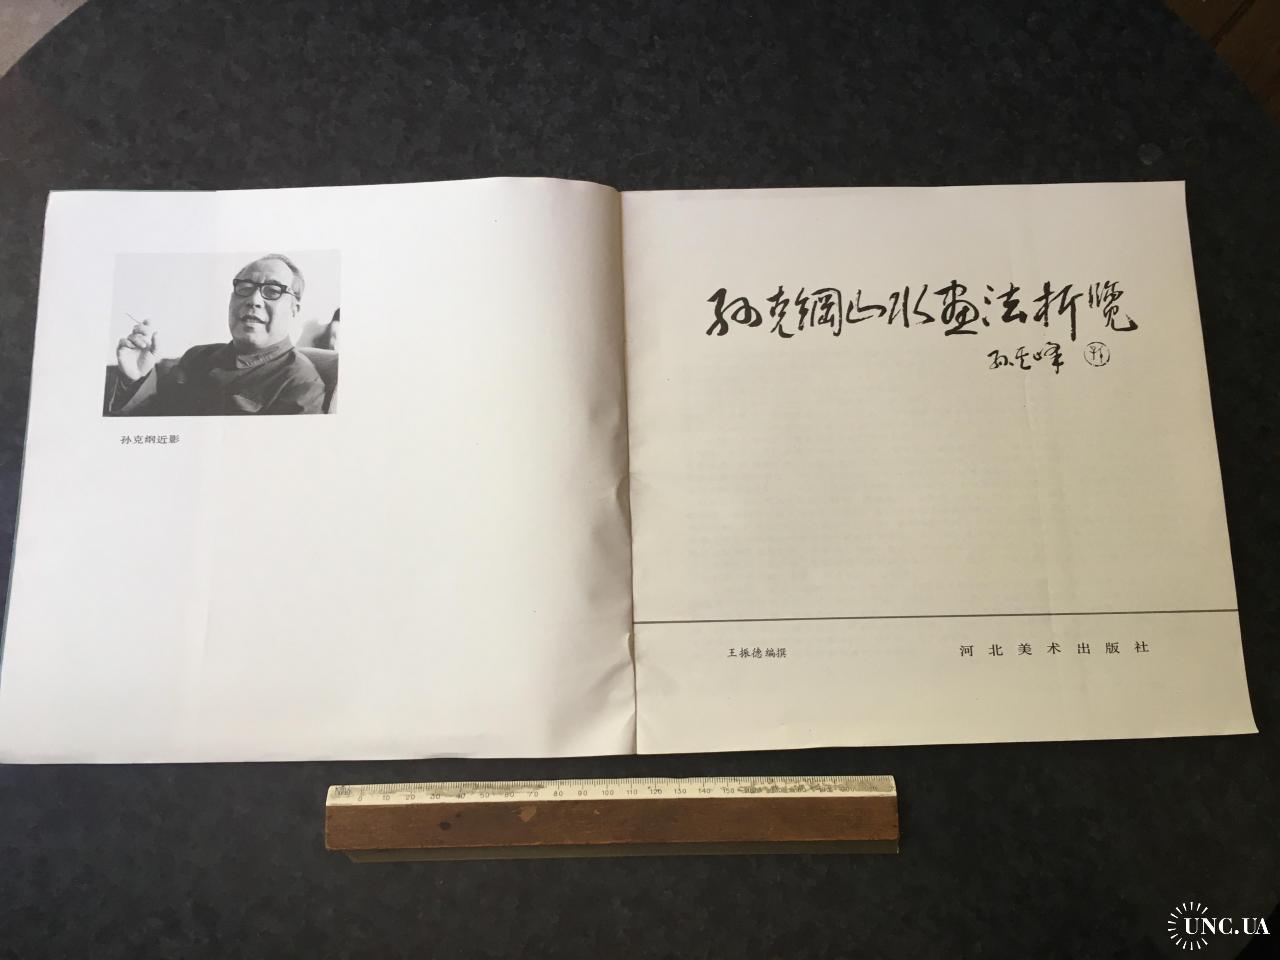 孙克纲近影
孙克綱山水画法析覽
孙其峰
王振德编撰
河北美术出版社
0 10 20 30 40 50 60 70 80 90 100 110 120 130 140 150
UNC.UA